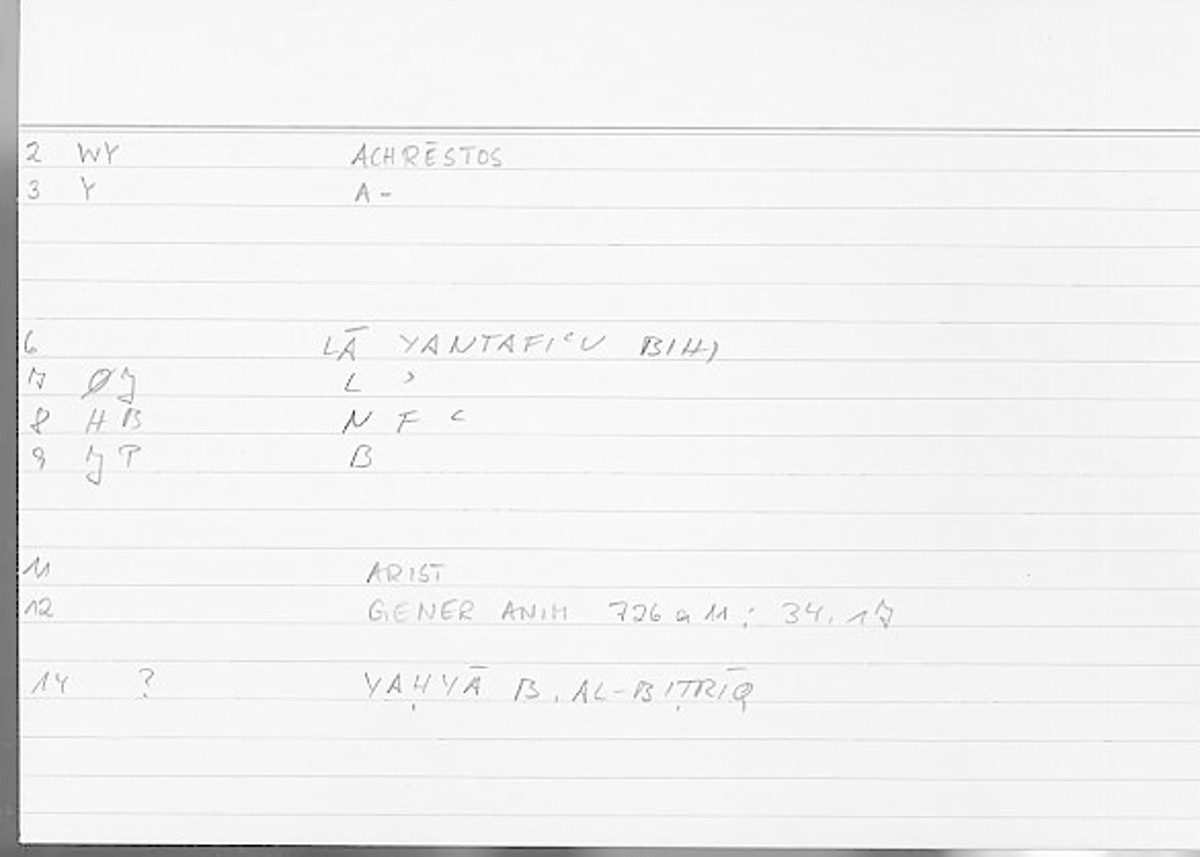 2 WY ACHRĒSTOS
3 Y A-
6 LĀ YANTAFIʿU BIHI
7 ØJ L ʾ
8 HB N F ʿ
9 JP B
11 ARIST
12 GENER ANIM 726 a 11 : 34.17
14 ? YAḤYĀ B. AL-BIṬRĪQ